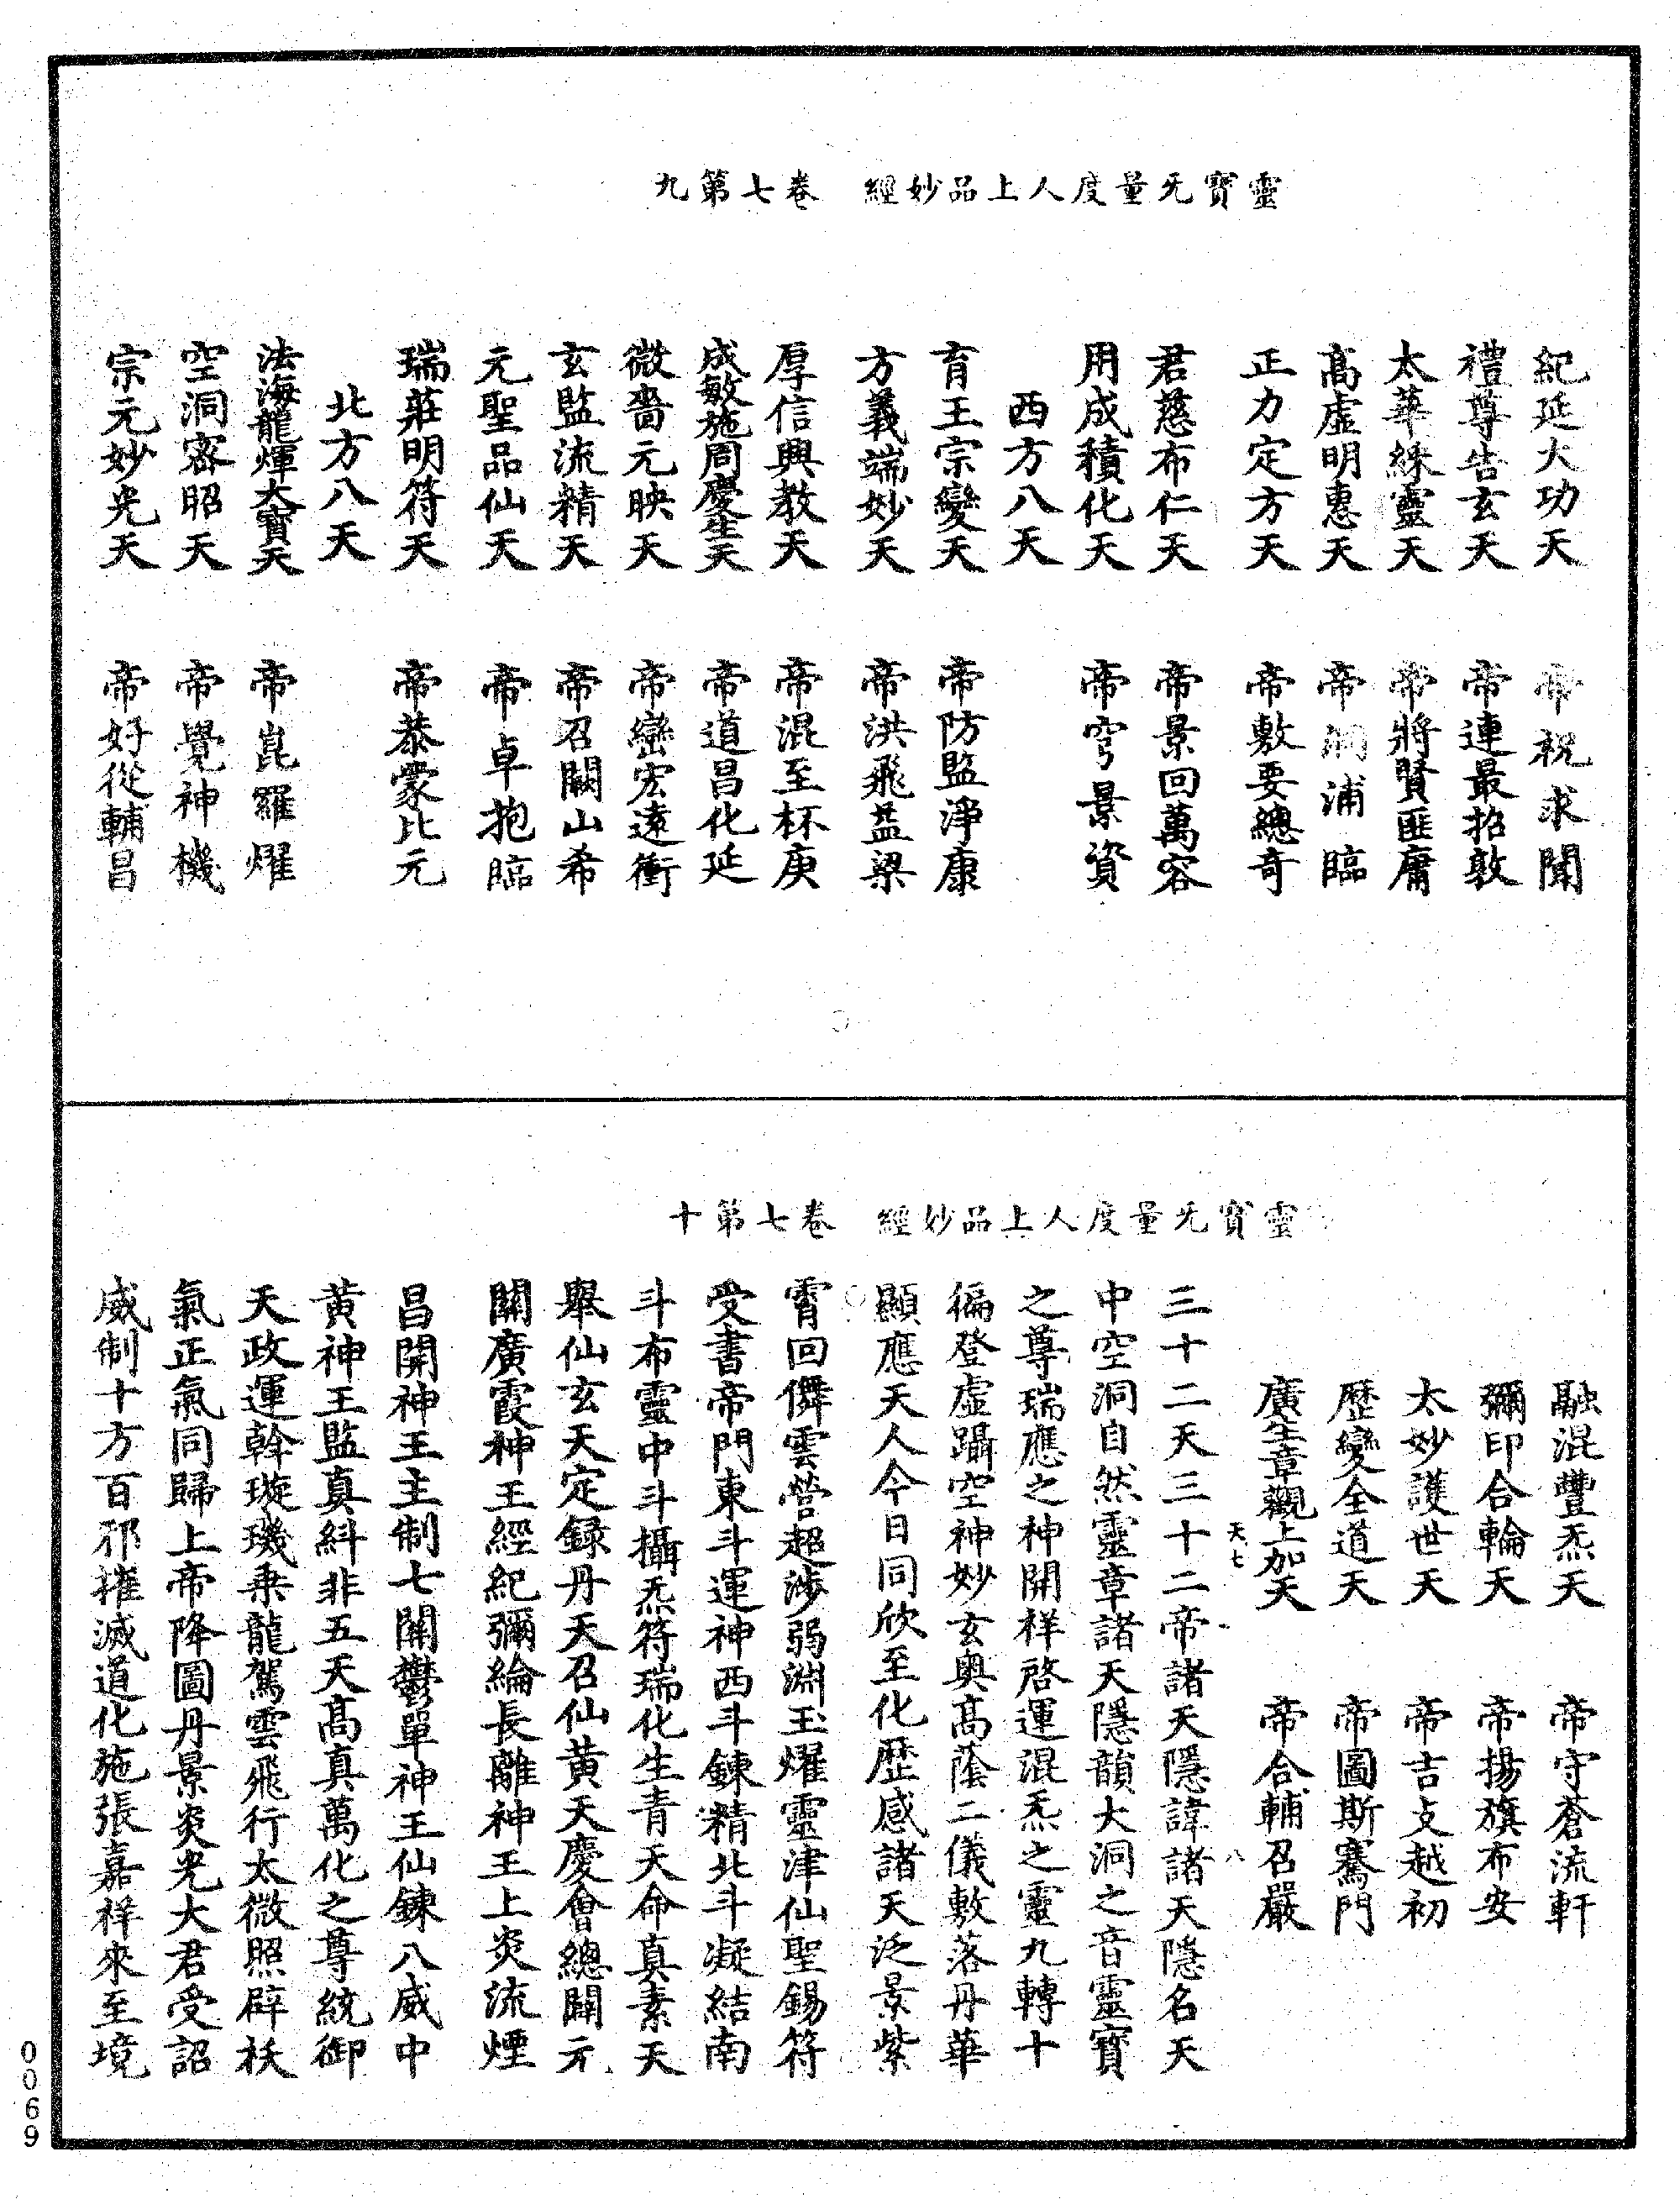 靈寶无量度人上品妙經　卷七第九
紀延大功天　帝祝求聞
禮尊告玄天　帝連最招敦
太華綵靈天　帝將賢匪庸
高虛明惠天　帝洞浦臨
正力定方天　帝敷要總奇
君慈布仁天　帝景回萬容
用成積化天　帝穹景資
西方八天
育王宗變天　帝防監淨康
方義端妙天　帝洪飛益梁
厚信興教天　帝混至杯庚
成敏施周慶生天　帝道昌化延
微嗇元映天　帝巒宏遠衝
玄監流精天　帝召闕山希
元聖品仙天　帝卓抱臨
瑞莊明符天　帝恭蒙比元
北方八天
法海龍煇大寶天　帝崑羅燿
空洞密昭天　帝覺神機
宗元妙光天　帝好從輔昌
靈寶无量度人上品妙經　卷七第十
融混豐炁天　帝守蒼流軒
彌印合輪天　帝揚旗布安
太妙護世天　帝吉攴越初
歷變全道天　帝圖斯騫門
廣生章觀上加天　帝合輔召嚴
天七　八
三十二天三十二帝諸天隱諱諸天隱名天
中空洞自然靈章諸天隱韻大洞之音靈寶
之尊瑞應之神開祥啓運混炁之靈九轉十
徧登虛躡空神妙玄奥高蔭二儀敷落丹華
顯應天人今日同欣至化歷感諸天泛景紫
霄回儛雲營超渉弱淵玉燿靈津仙聖錫符
受書帝門東斗運神西斗鍊精北斗凝結南
斗布靈中斗攝炁符瑞化生青天命真素天
舉仙玄天定録丹天召仙黄天慶會總開元
關廣霞神王經紀彌綸長離神王上炎流煙
昌開神王主制七關鬱單神王仙鍊八威中
黄神王監真糾非五天高真萬化之尊統御
天政運幹璇璣乗龍駕雲飛行太微照辟袄
氣正氣同歸上帝降圖丹景炎光大君受詔
威制十方百邪摧滅道化施張嘉祥來至境
0069